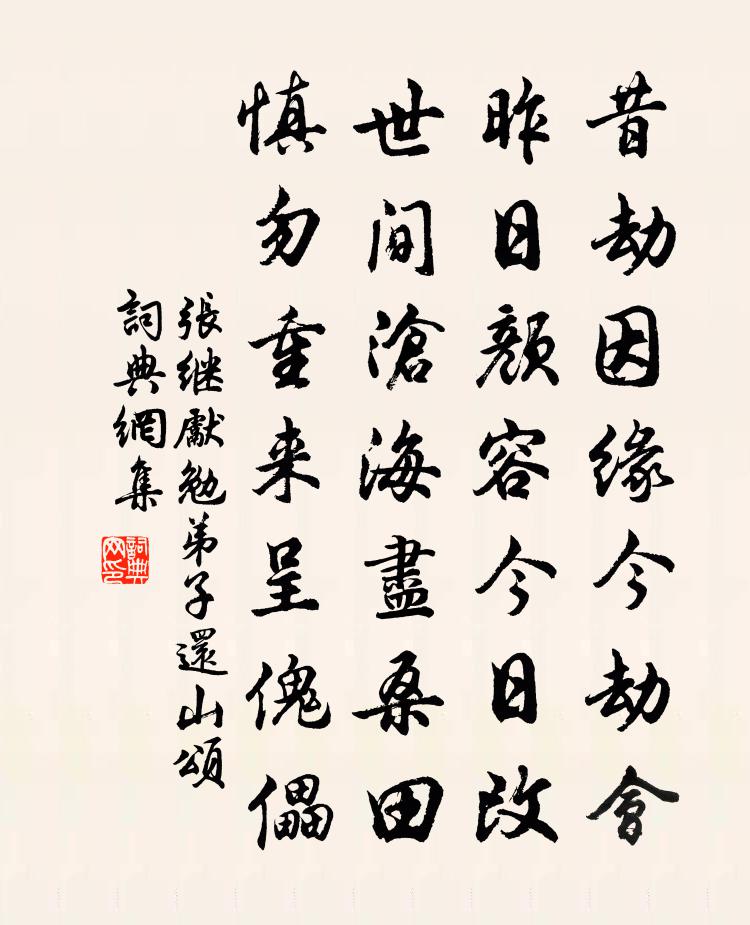 昔劫因缘今劫會
昨日顏容今日改
世間滄海盡桑田
慎勿重来呈傀儡
張继獻勉弟子還山頌
詞典網集
詞典
网印